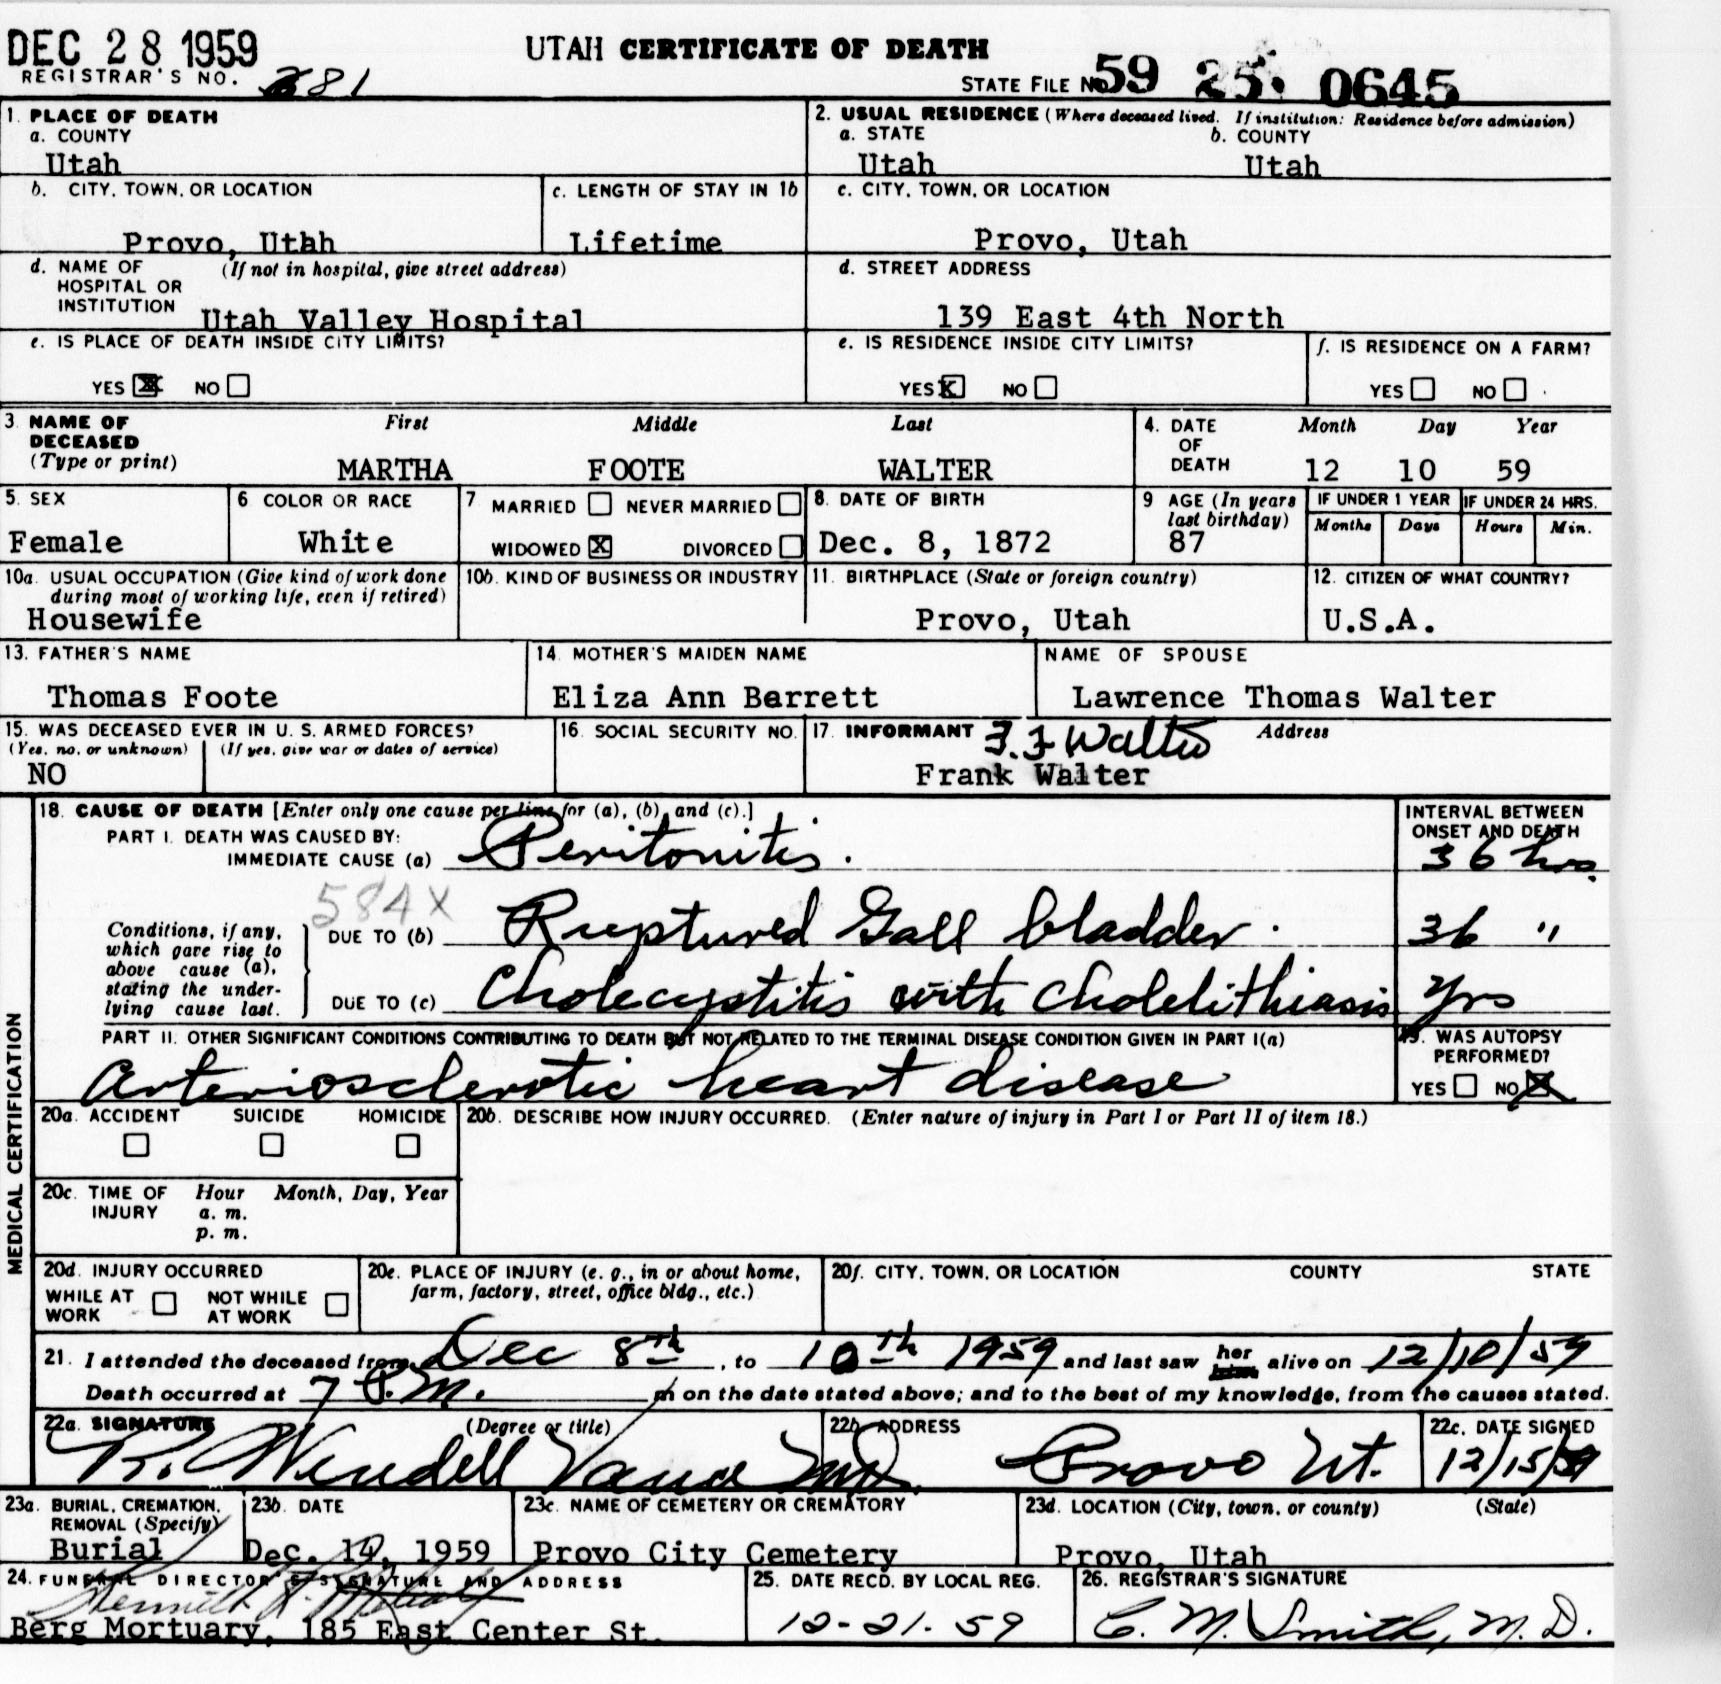 DEC 28 1959
UTAH CERTIFICATE OF DEATH
REGISTRAR'S NO. 681
STATE FILE NO. 59 25 0645
1. PLACE OF DEATH
a. COUNTY
Utah
2. USUAL RESIDENCE (Where deceased lived. If institution: Residence before admission)
a. STATE b. COUNTY
Utah Utah
b. CITY, TOWN, OR LOCATION
Provo, Uthh
c. LENGTH OF STAY IN 1b
Lifetime
c. CITY, TOWN, OR LOCATION
Provo, Utah
d. NAME OF (If not in hospital, give street address)
HOSPITAL OR
INSTITUTION Utah Valley Hospital
d. STREET ADDRESS
139 East 4th North
e. IS PLACE OF DEATH INSIDE CITY LIMITS?
YES X NO
e. IS RESIDENCE INSIDE CITY LIMITS?
YES X NO
f. IS RESIDENCE ON A FARM?
YES NO
3. NAME OF DECEASED (Type or print)
First Middle Last
MARTHA FOOTE WALTER
4. DATE OF DEATH
Month Day Year
12 10 59
5. SEX
Female
6 COLOR OR RACE
White
7 MARRIED NEVER MARRIED
WIDOWED X DIVORCED
8. DATE OF BIRTH
Dec. 8, 1872
9 AGE (In years last birthday)
87
IF UNDER 1 YEAR
Months Days
IF UNDER 24 HRS.
Hours Min.
10a. USUAL OCCUPATION (Give kind of work done
during most of working life, even if retired)
Housewife
10b. KIND OF BUSINESS OR INDUSTRY
11. BIRTHPLACE (State or foreign country)
Provo, Utah
12. CITIZEN OF WHAT COUNTRY?
U.S.A.
13. FATHER'S NAME
Thomas Foote
14. MOTHER'S MAIDEN NAME
Eliza Ann Barrett
NAME OF SPOUSE
Lawrence Thomas Walter
15. WAS DECEASED EVER IN U. S. ARMED FORCES?
(Yes, no, or unknown) (If yes, give war or dates of service)
NO
16. SOCIAL SECURITY NO.
17. INFORMANT Walter Address
Frank Walter
MEDICAL CERTIFICATION
18. CAUSE OF DEATH [Enter only one cause per line for (a), (b), and (c).]
PART I. DEATH WAS CAUSED BY:
IMMEDIATE CAUSE (a) Peritonitis.
INTERVAL BETWEEN
ONSET AND DEATH
36 hrs.
584X
Conditions, if any,
which gave rise to
above cause (a),
stating the under-
lying cause last.
DUE TO (b) Ruptured Gall bladder. 36 "
DUE TO (c) Cholecystitis with cholelithiasis yrs
PART II. OTHER SIGNIFICANT CONDITIONS CONTRIBUTING TO DEATH BUT NOT RELATED TO THE TERMINAL DISEASE CONDITION GIVEN IN PART I(a)
Arteriosclerotic heart disease
19. WAS AUTOPSY
PERFORMED?
YES NO X
20a. ACCIDENT SUICIDE HOMICIDE
20b. DESCRIBE HOW INJURY OCCURRED. (Enter nature of injury in Part I or Part II of item 18.)
20c. TIME OF INJURY
Hour Month, Day, Year
a. m.
p. m.
20d. INJURY OCCURRED
WHILE AT WORK NOT WHILE AT WORK
20e. PLACE OF INJURY (e. g., in or about home,
farm, factory, street, office bldg., etc.)
20f. CITY, TOWN, OR LOCATION COUNTY STATE
21. I attended the deceased from Dec 8th, to 10th 1959 and last saw her him alive on 12/10/59
Death occurred at 7 P.M. m on the date stated above; and to the best of my knowledge, from the causes stated.
22a. SIGNATURE (Degree or title)
R. Wendell Vance MD.
22b. ADDRESS
Provo Ut.
22c. DATE SIGNED
12/15/59
23a. BURIAL, CREMATION,
REMOVAL (Specify)
Burial
23b. DATE
Dec. 14, 1959
23c. NAME OF CEMETERY OR CREMATORY
Provo City Cemetery
23d. LOCATION (City, town, or county) (State)
Provo, Utah
24. FUNERAL DIRECTOR'S SIGNATURE AND ADDRESS
Berg Mortuary, 185 East Center St.
25. DATE RECD. BY LOCAL REG.
12-21-59
26. REGISTRAR'S SIGNATURE
C. M. Smith, M. D.